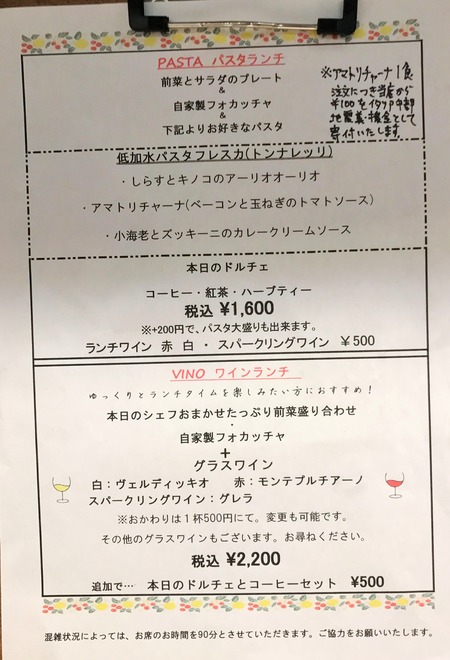 PASTA パスタランチ
前菜とサラダのプレート
&
自家製フォカッチャ
&
下記よりお好きなパスタ
※アマトリチャーナ1食
注文につき当店から
¥100をイタリア中部
地震義援金として
寄付いたします。
低加水パスタフレスカ(トンナレッリ)
・しらすとキノコのアーリオオーリオ
・アマトリチャーナ(ベーコンと玉ねぎのトマトソース)
・小海老とズッキーニのカレークリームソース
本日のドルチェ
コーヒー・紅茶・ハーブティー
税込 ¥1,600
※+200円で、パスタ大盛りも出来ます。
ランチワイン 赤 白 ・ スパークリングワイン ¥500
VINO ワインランチ
ゆっくりとランチタイムを楽しみたい方におすすめ!
本日のシェフおまかせたっぷり前菜盛り合わせ
・
自家製フォカッチャ
+
グラスワイン
白:ヴェルディッキオ 赤:モンテプルチアーノ
スパークリングワイン:グレラ
※おかわりは1杯500円にて。変更も可能です。
その他のグラスワインもございます。お尋ねください。
税込 ¥2,200
追加で… 本日のドルチェとコーヒーセット ¥500
混雑状況によっては、お席のお時間を90分とさせていただきます。ご協力をお願いいたします。